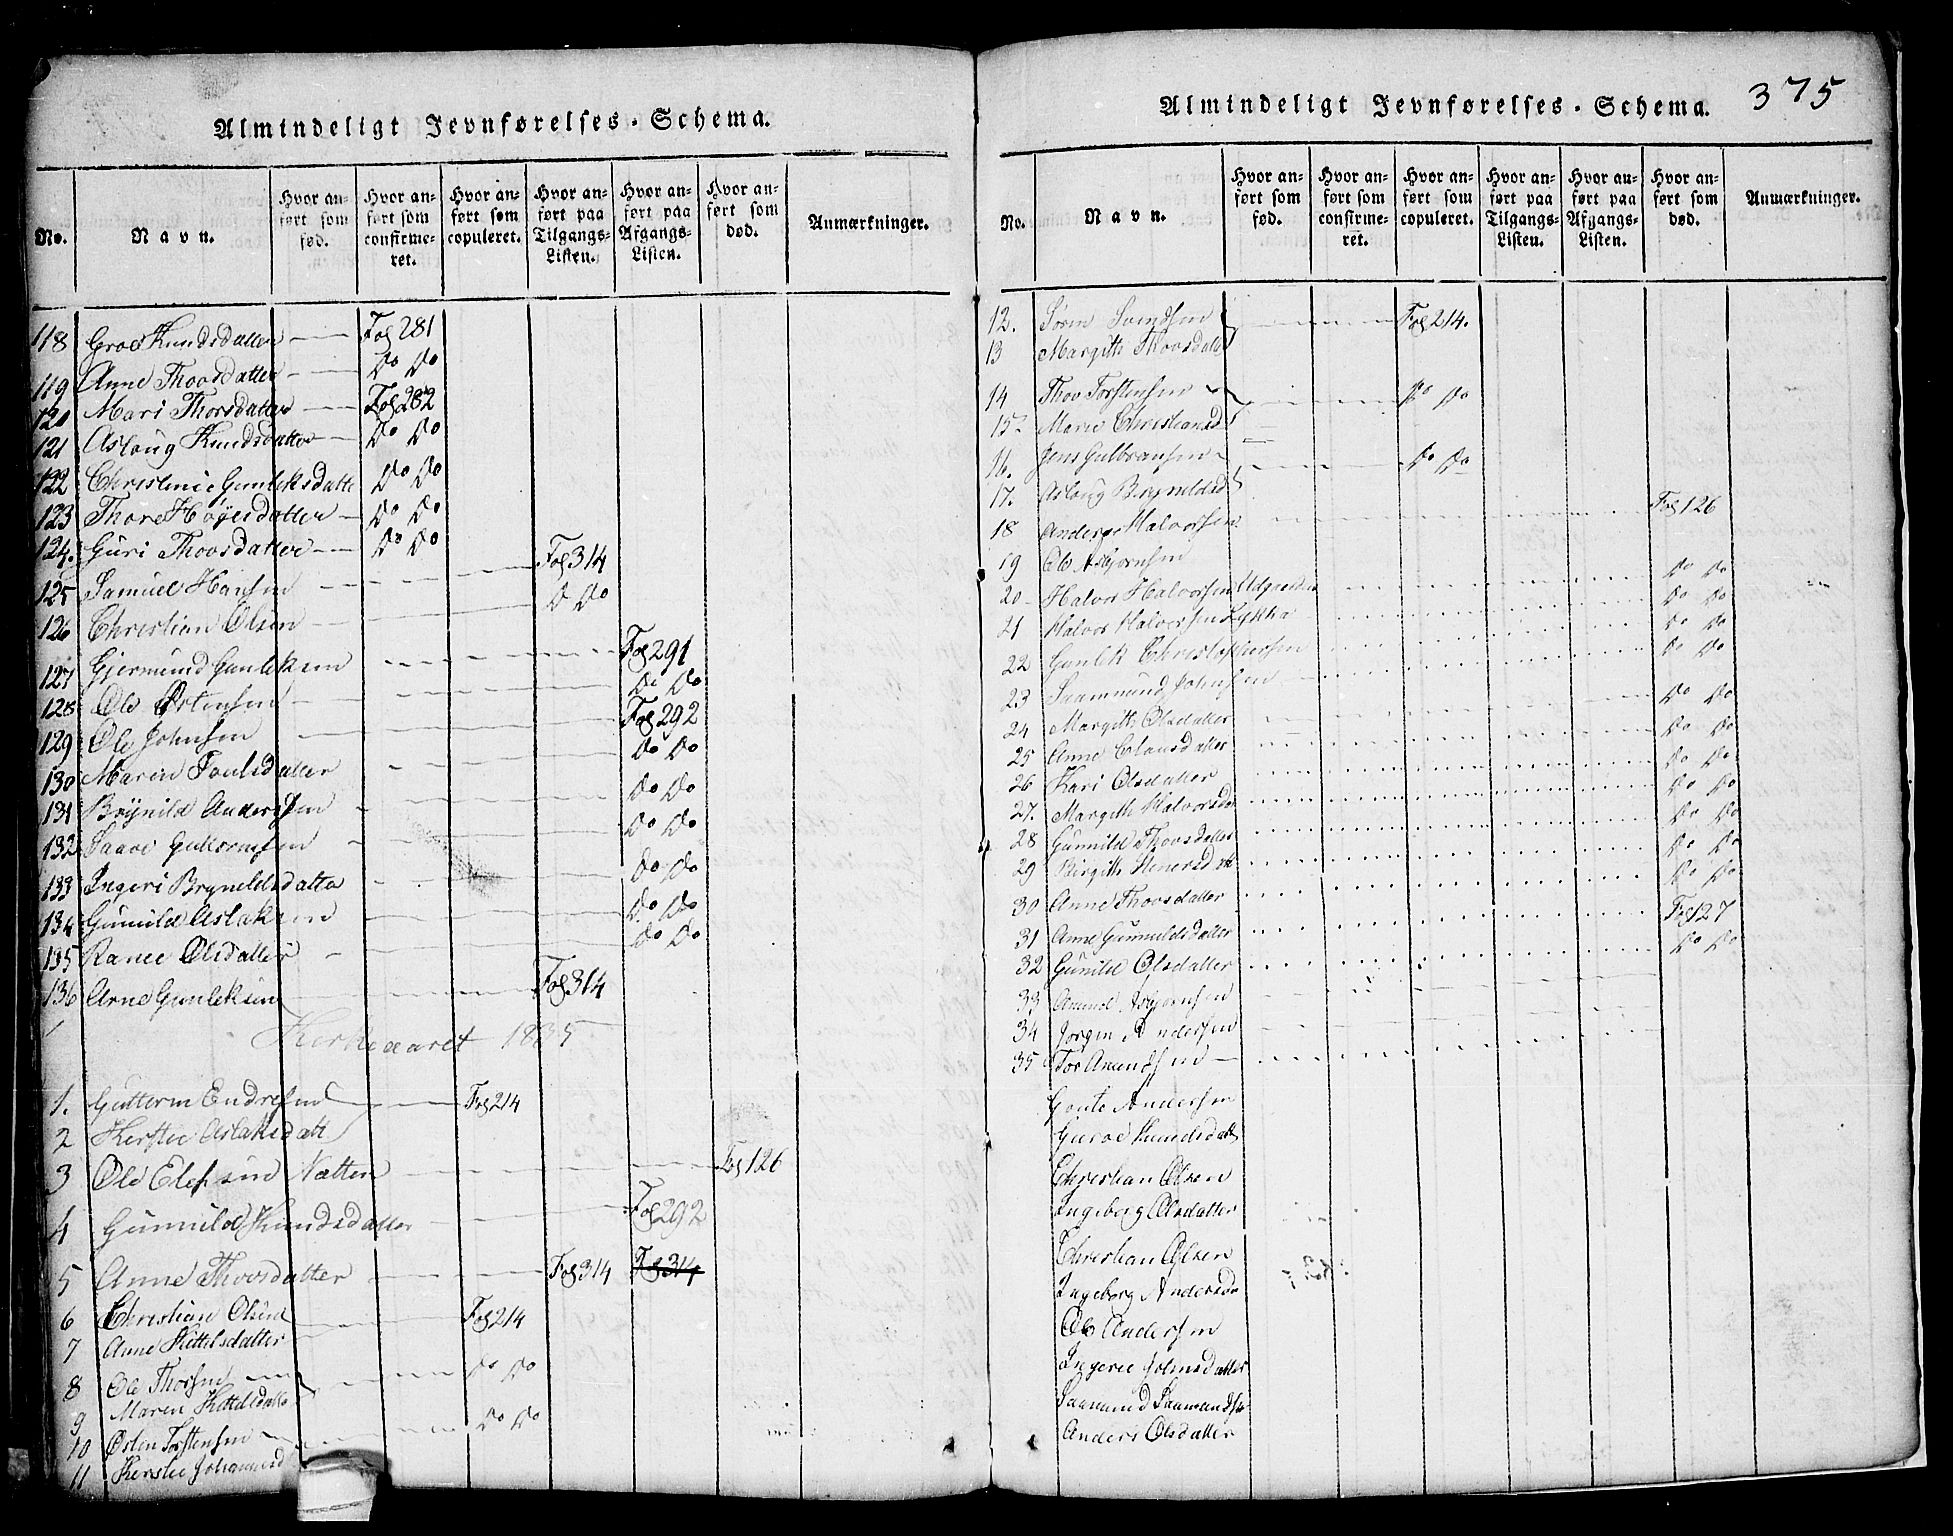 Almindeligt Jevnførelses-Schema.
No.
Navn.
Hvor anført som fød.
Hvor anført som confirmeret.
Hvor anført som copuleret.
Hvor anført paa Tilgangs-Listen.
Hvor anført paa Afgangs-Listen.
Hvor anført som død.
Anmærkninger.
118 Groe Knudsdatter Fol 281
119 Anne Thovsdatter Do Do
120 Mari Thorsdatter Fol 282
121 Aslaug Knudsdatter Do Do
122 Christinie Gunleksdatte Do Do
123 Thore Høyesdatter Do Do
124. Guri Thovsdatter Do Do
125 Samuel Hansen Fol 314
126 Christian Olsen Do Do
127 Gjermund Gunleksen Fol 291
128 Ole Østensen Do Do
129 Ole Johnsen Fol 292
130 Maren Poulsdatter Do Do
131 Brynild Andersen Do Do
132 Saave Guttormsen Do Do
133 Ingeri Bryneldsdatter Do Do
134 Gunnild Aslaksen Do Do
135 Ranei Olsdatter Do Do
136 Arne Gunleksen Fol 314
Kirkeaaret 1835
1. Guttorm Endresen Fol 214
2 Kirstie Aslaksdatt
3 Ole Elefsen Natten Fol 126
4 Gunnild Knudsdatter Fol 292
5 Anne Thovsdatter Fol 314 Fol 314
6 Christian Olsen Fol 214
7 Anne Kittelsdatter
8 Ole Thorsen Do Do
9 Maren Kittelsdatte
10 Østen Torstensen Do Do
11 Kirstie Johannesd
Almindeligt Jevnførelses-Schema.
375
No.
Navn.
Hvor anført som fød.
Hvor anført som confirmeret.
Hvor anført som copuleret.
Hvor anført paa Tilgangs-Listen.
Hvor anført paa Afgangs-Listen.
Hvor anført som død.
Anmærkninger.
12. Søren Svendsen Fol 214.
13 Margith Thovsdatte
14 Thov Torstensen Do Do
15 Marie Christiansd
16. Jens Gulbransen Do Do
17. Aslaug Bryneldsd
18 Anders Halvorsen Fol 126
19 Ole Asbjørnsen Do Do
20 Halvor Halvorsen Do Do
21 Halvor Halvorsen Lykkia Do Do
22 Gunlek Christophersen Do Do
23 Saamund Johnsen Do Do
24 Margith Olsdatter Do Do
25 Anne Clausdatter Do Do
26 Kari Olsdatter Do Do
27. Margith Halvorsda Do Do
28 Gunnild Thovsdatter Do Do
29 Birgith Do Do
30 Anne Thovsdatter Fol 127
31 Anne Gunnuldsdatter Do Do
32 Gunild Olsdatter
33 Amund Asbjørnsen
34 Jørgen Andersen
35 Tor Amundsen
Goute Andersen
Guroe Knudsdatt
Christian Olsen
Ingeborg Olsdatter
Christian Olsen
Ingeborg Andersda
Ole Andersen
Ingerie Johnsdatter
Saamund Saamundsen
Anders Olsdatter